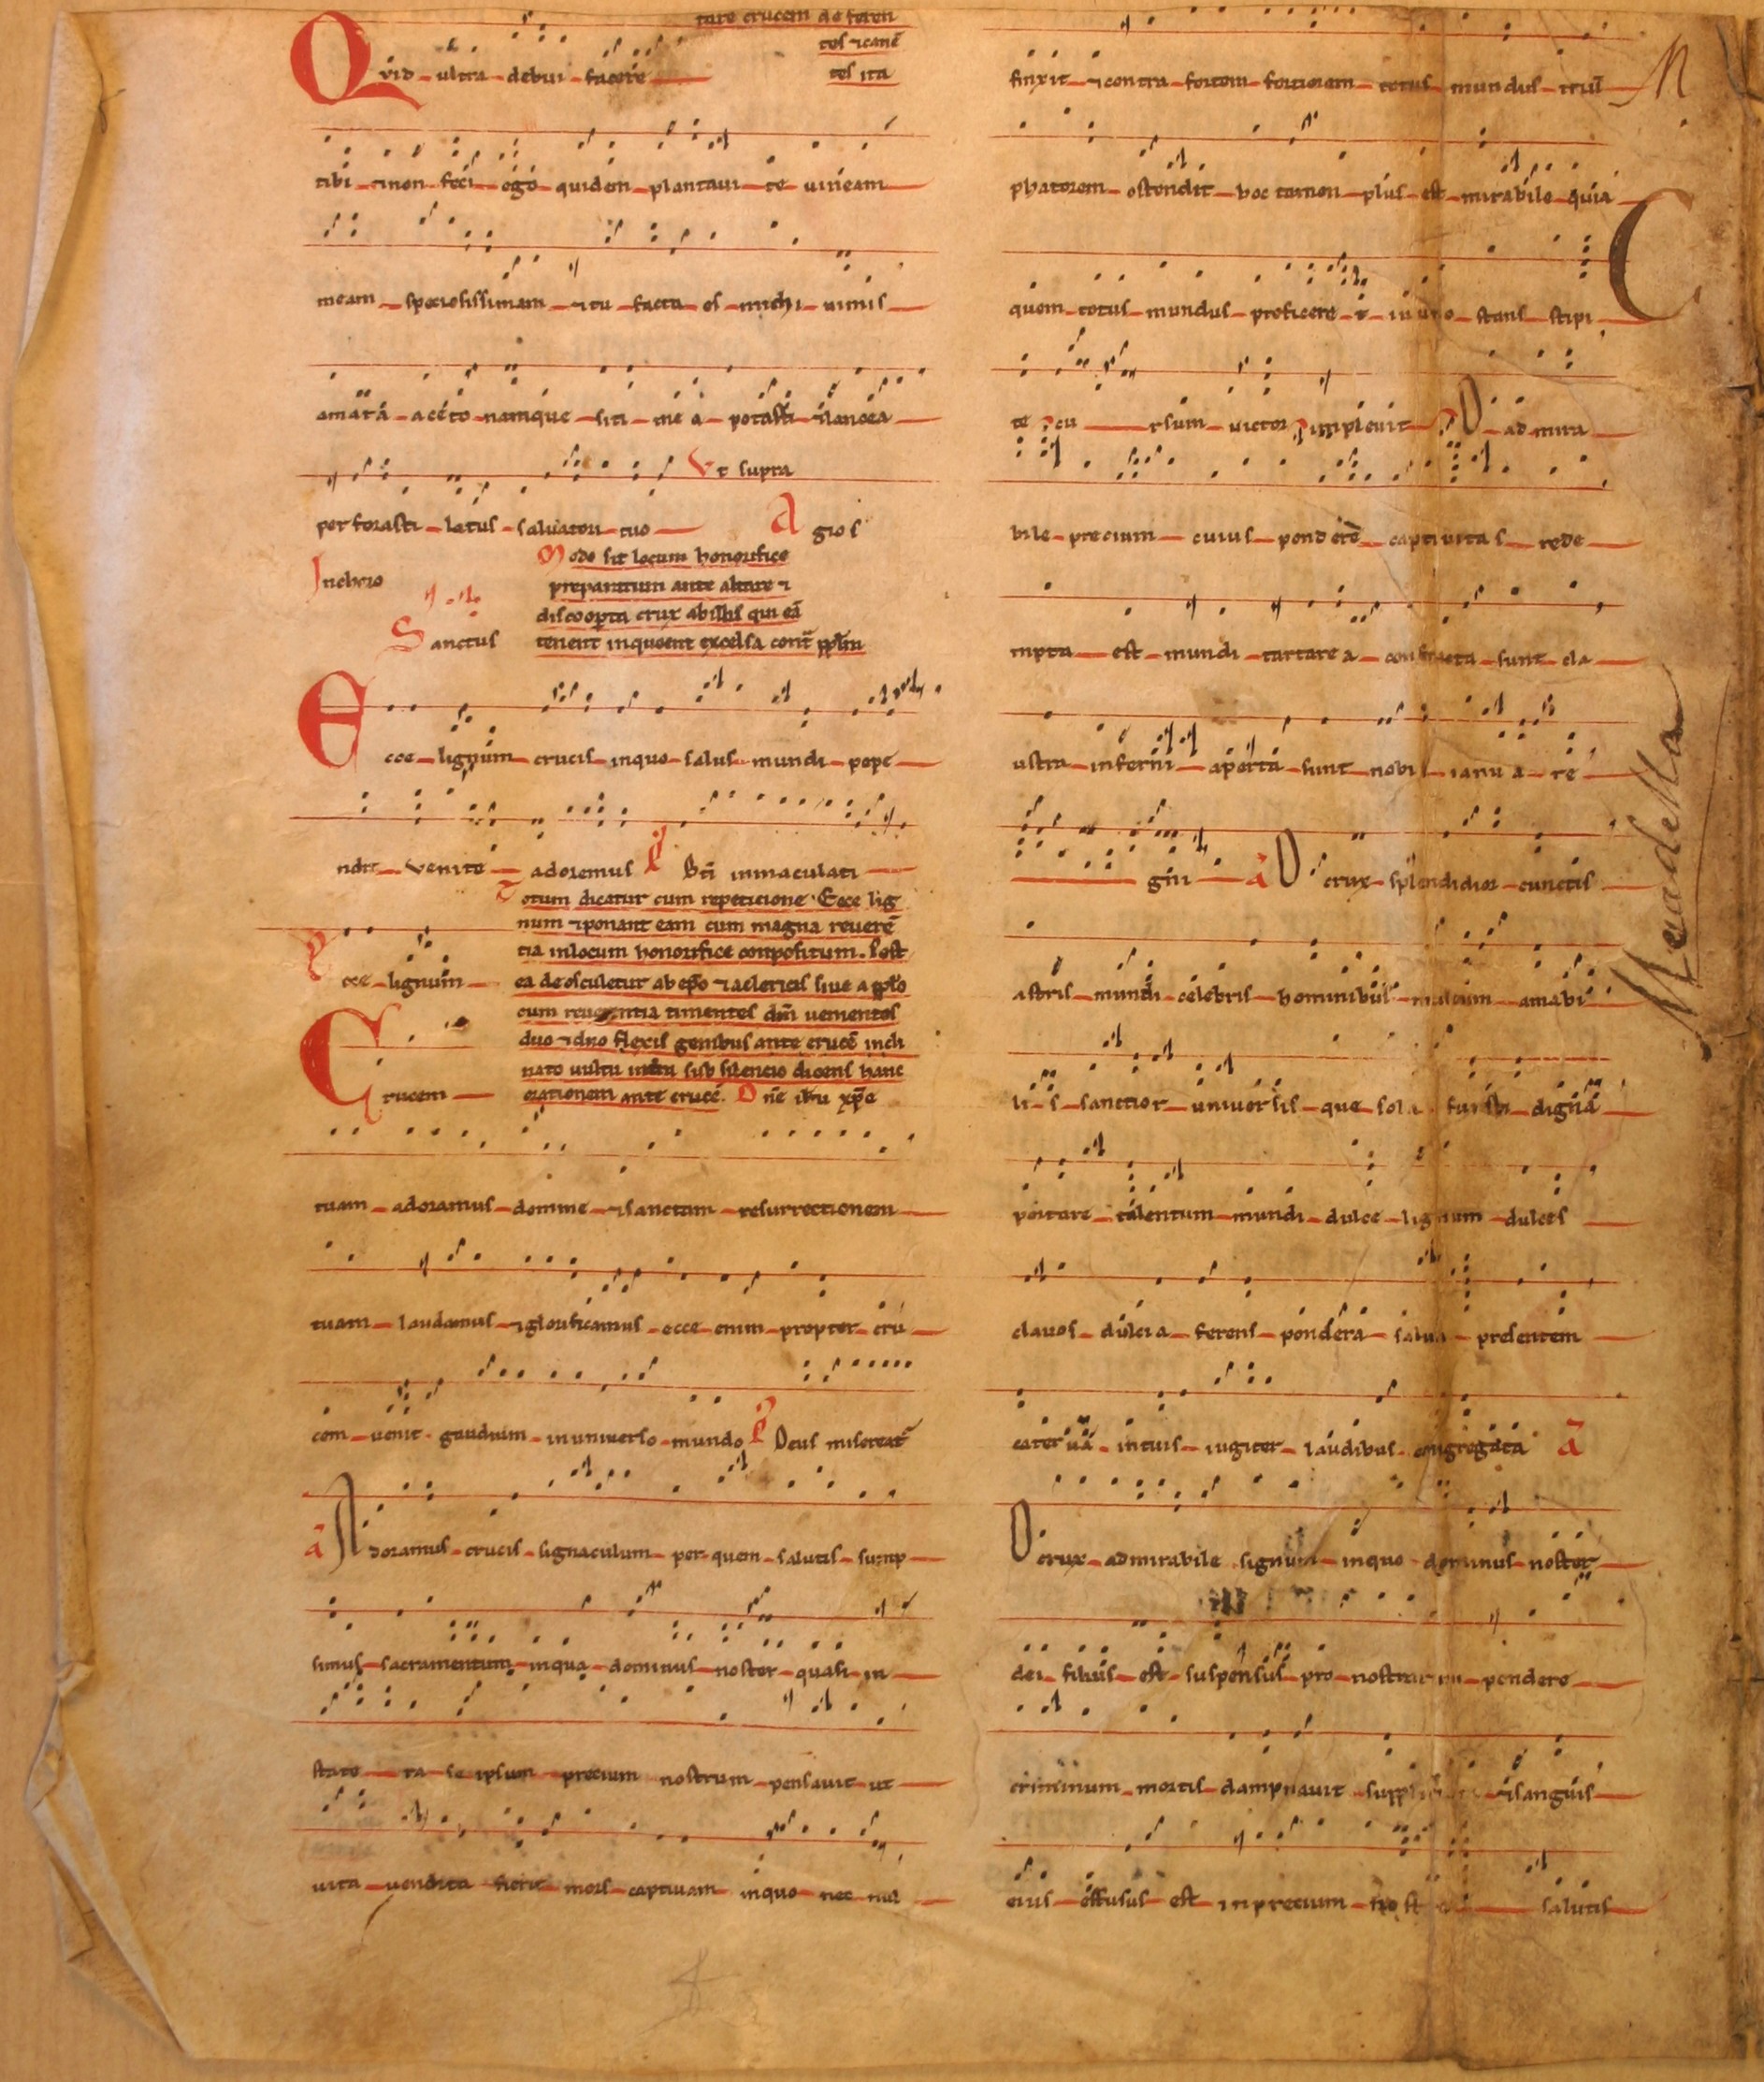 tare crucem deferen
tes ⁊ canē
tes ita
Quid ultra debui facere
tibi ⁊ non feci ego quidem plantaui te uineam
meam speciosissimam ⁊ tu facta es michi nimis
amara aceto namque siti me a potasti ⁊ lancea
perforasti latus saluatori tuo Vt supra
Agios
Inchoro
Sanctus
Modo sit locum honorifice
preparatum ante altare ⁊
discooperta crux ab illis qui eā
tenent inquoent excelsa
Ecce lignum crucis inquo salus mundi pepe
ndit venite adoremus Bti inmaculati
Totum dicatur cum repeticione Ecce lig
num ⁊ ponant eam cum magna reuerē
tia inlocum honorifice conpositum. Post
ea deosculetur ab ep̄o ⁊ aclericis siue a pp̄lo
cum reuerentia timentes dm̄ uenientes
duo ⁊ duo flexis genibus ante crucē incli
nato uultu sub silencio dicens hanc
orationem ante crucē. Dn̄e ih̄u xp̄e
Ecce lignum
Crucem
tuam adoramus domine ⁊ sanctam resurrectionem
tuam laudamus ⁊ glorificamus ecce enim propter cru
cem uenit gaudium inuniuerso mundo Deus misereat᷑
ā Adoramus crucis signaculum per quem salutis sump
simus sacramentum inqua dominus noster quasi in
state ra se ipsum precium nostrum pensauit ut
uita uendita fieret mors captiuam inquo nec mul
finxit ⁊ contra fortem fortiorem totus mundus triū
phatorem ostendit hoc tamen plus est mirabile quia
quem totus mundus proficere stans stipi
te cu rsum uictor impleuit O admira
bile precium cuius pondere captiuitas rede
mpta est mundi tartarea confracta sunt cla
ustra inferni aperta sunt nobis ianua re
gni ā O crux splendidior cunctis
astris mundi celebris hominibus multum amabi
li s sanctior uniuersis que sola fuisti digna
portare talentum mundi dulce lignum dulces
clauos dulcia ferens pondera salua presentem
cateruā intuis iugiter laudibus congregata ā
O crux admirabile signum inquo dominus noster
dei filius est suspensus pro nostrorum pondere
criminum mortis dampnauit ⁊ sanguis
eius effusus est inprecium salutis
M
C
Meadella